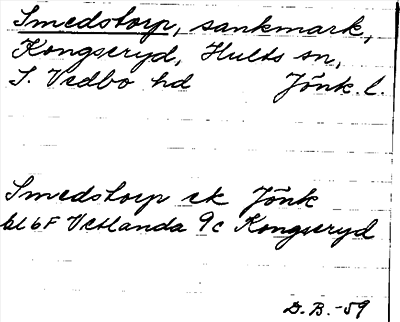 Smedstorp, sankmark,
Kongseryd, Hults sn,
S. Vedbo hd Jönk. l.
Smedstorp ek Jönk
bl 6F Vetlanda 9c Kongseryd
D.B.-59